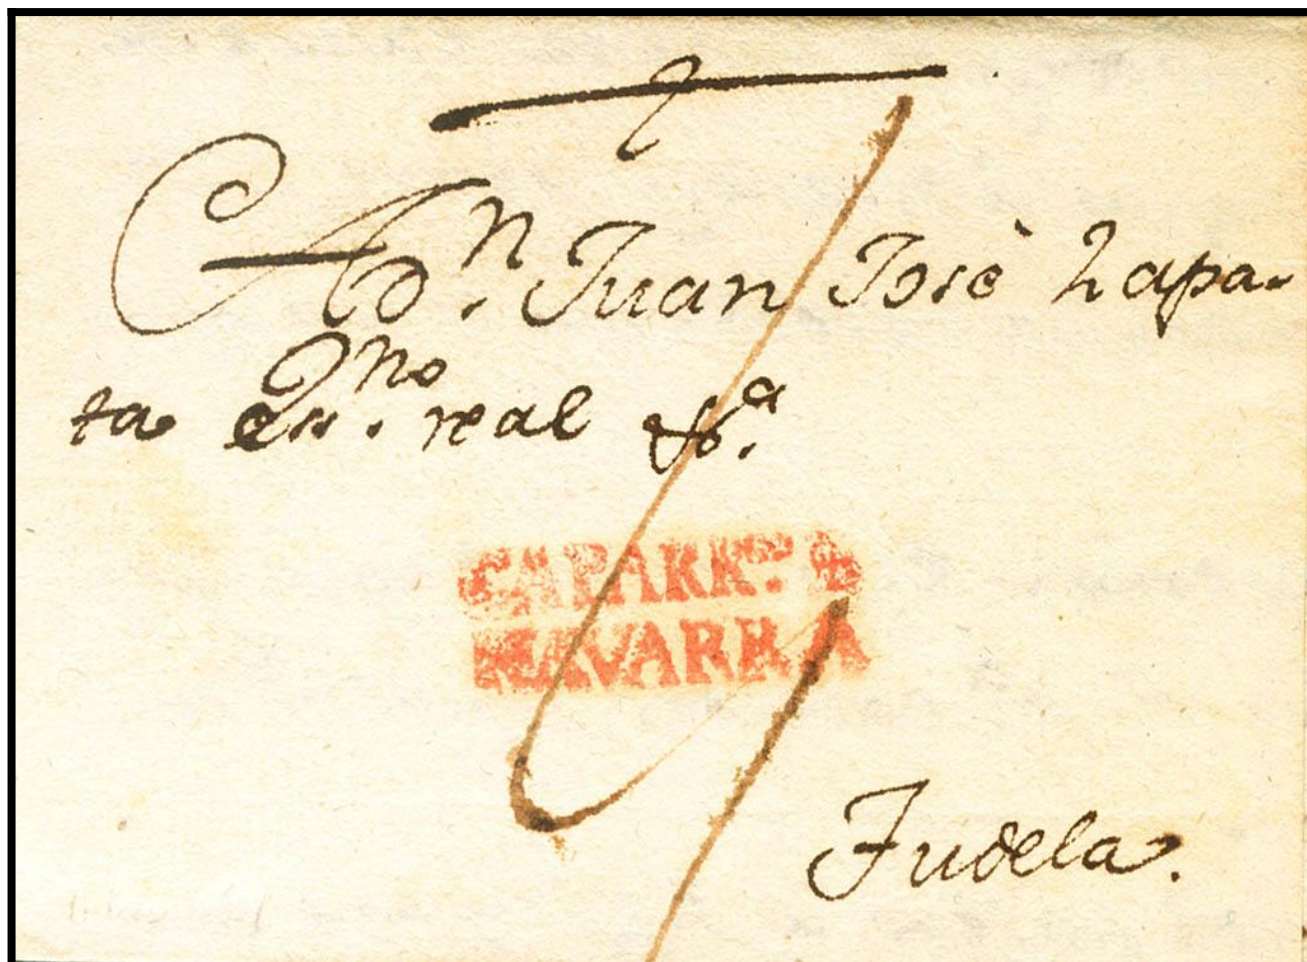 A Dn. Juan Josè Zapa-
ta essno. real &a.
CAPARRº.
NAVARRA
Tudela.